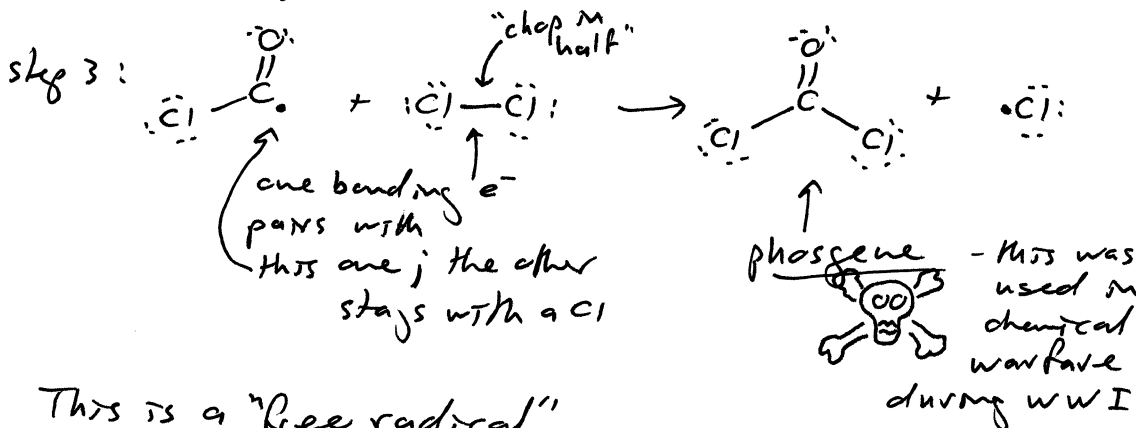 "chop in
half"
step 3:
O
Cl C + Cl — Cl → Cl C Cl + Cl
one bonding e⁻
pairs with
this one; the other
stays with a Cl
phosgene - this was
used in
chemical
warfare
during WWI
This is a "free radical"